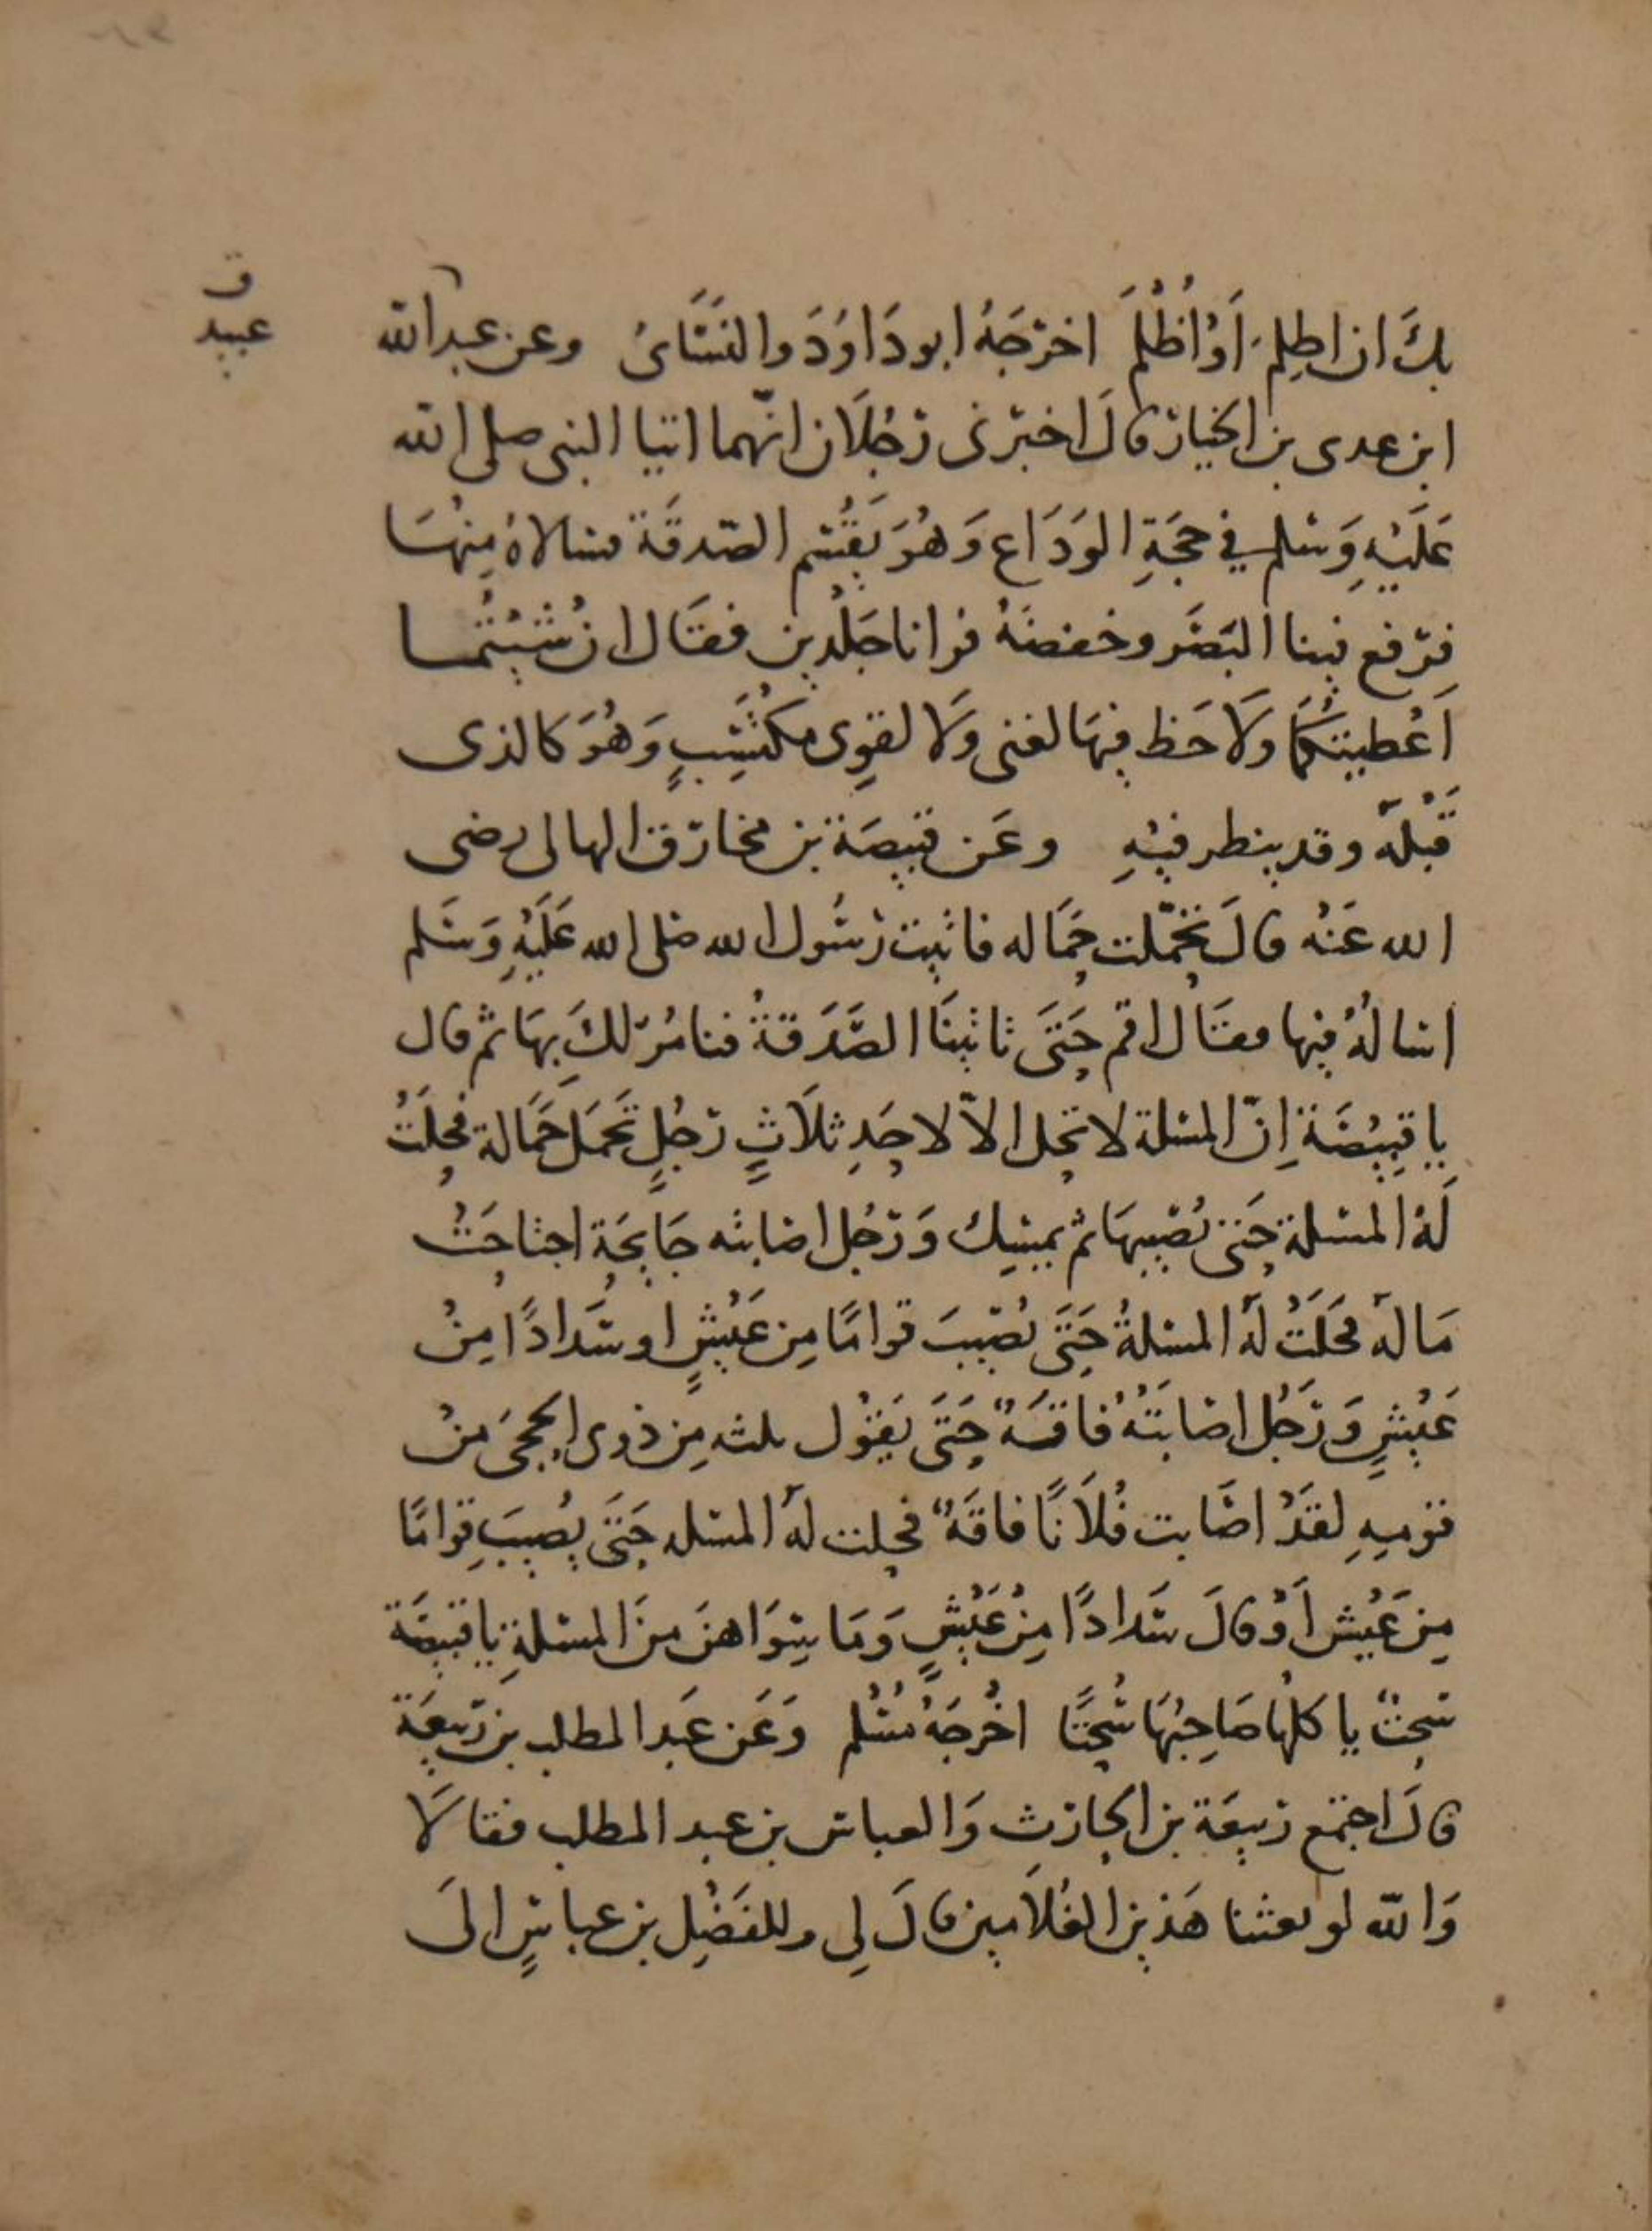 ق
عبيد
بكَ ان اظلِم اَوْ اُظْلَمَ اخرَجَهُ ابو دَاوُدَ والنَسَّاىُ وعن عبد الله
ابن عدى بن الخيار قالَ اخبرنى رَجُلَان انّهما اتيا النبى صلى الله
عَلَيْهِ وَسَلم في حجَةِ الوَدَاع وَهُوَ يَقْسِم الصّدقَة فسالاهُ مِنْهَا
فرَفع فينا البَصَر وخفضَهُ فرانا جَلْدين فقَال ان شئْتُما
اَعْطيتُكمَا ولَا حَظ فيهَا لغنى ولَا لقوِى مكتَسِبٍ وَهُوَ كالذى
قَبْلَهُ وقد ينظر فيْهِ وعَن قبيصَة بن مخارق الهالى رضى
الله عَنْهُ قالَ تحمّلت حَمَاله فاتيت رَسُول الله صلى الله عَلَيْهِ وَسَلم
اسالهُ فيها فقَال اقم حَتىَ تاتينَا الصَّدَقةُ فنامُرَ لكَ بهَا ثم قال
يا قبيْصَة اِنّ المسئلة لا تحل الاّ لاحَدِ ثلَاثٍ رَجُلٍ تَحَمَل حَمَالة فحلَتْ
لَهُ المسئلة حَتى يُصيبهَا ثم يمسِك وَرَجُل اصَابته جَايحَة اجتاحَتْ
مَالهُ فحَلَتْ لَهُ المسئلةُ حَتىَ يُصيبَ قوامًا مِن عَيْشٍ او سَدادًا مِنْ
عَيْشٍ وَرَجُل اصَابَتْهُ فاقَةٌ حَتىَ يَقوْل ثلثه مِن ذوى الحجىَ مِنْ
قوْمِهِ لقَدْ اصَابت فُلَانًا فاقَةٌ فحلت لهُ المسئله حَتىَ يُصيبَ قِوامًا
مِن عَيْش اَوْ قالَ سَدادًا مِنْ عَيْشٍ وَمَا سِوَاهنَ منَ المسئلةِ يا قبيصَة
سُحتٌ ياكلهَا صَاحِبُهَا سُحْتًا اخْرجَهُ مُسْلم وَعَن عَبد المطلب بن رَبيعَة
قالَ اجتمع رَبيعَة بن الحارث وَالعباس بن عبد المطلب فقالَا
وَالله لو بعثنا هَذين الغُلَامين قالَ لِى وللفَضْلِ بن عباسٍ الىَ